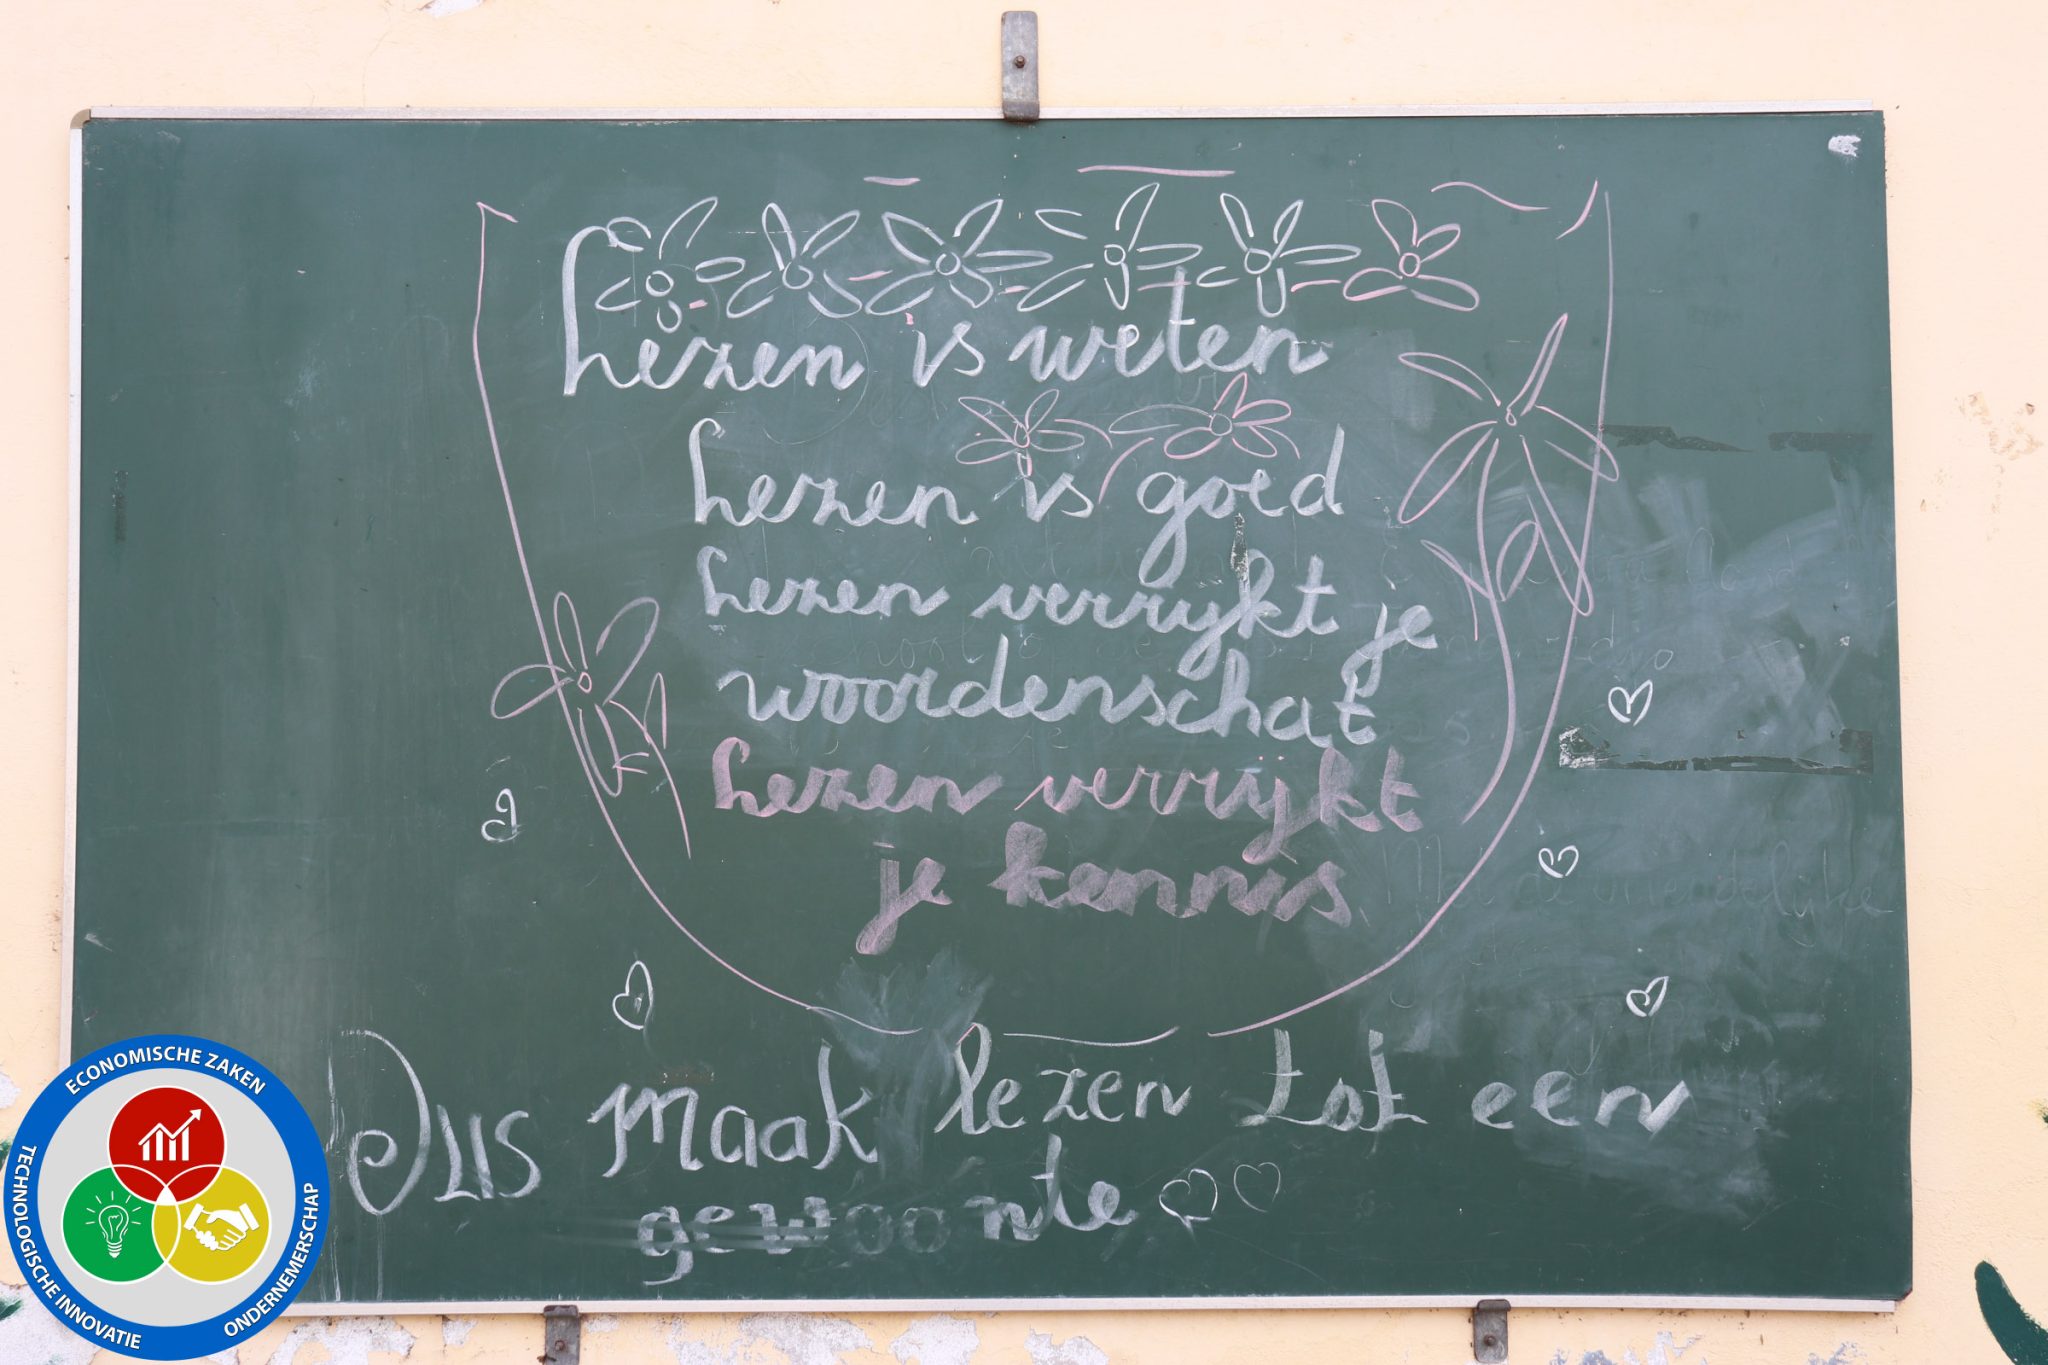 Lezen is weten
Lezen is goed
Lezen verrijkt je
woordenschat
Lezen verrijkt
je kennis
Dus maak lezen tot een
gewoonte
ECONOMISCHE ZAKEN
TECHNOLOGISCHE INNOVATIE
ONDERNEMERSCHAP